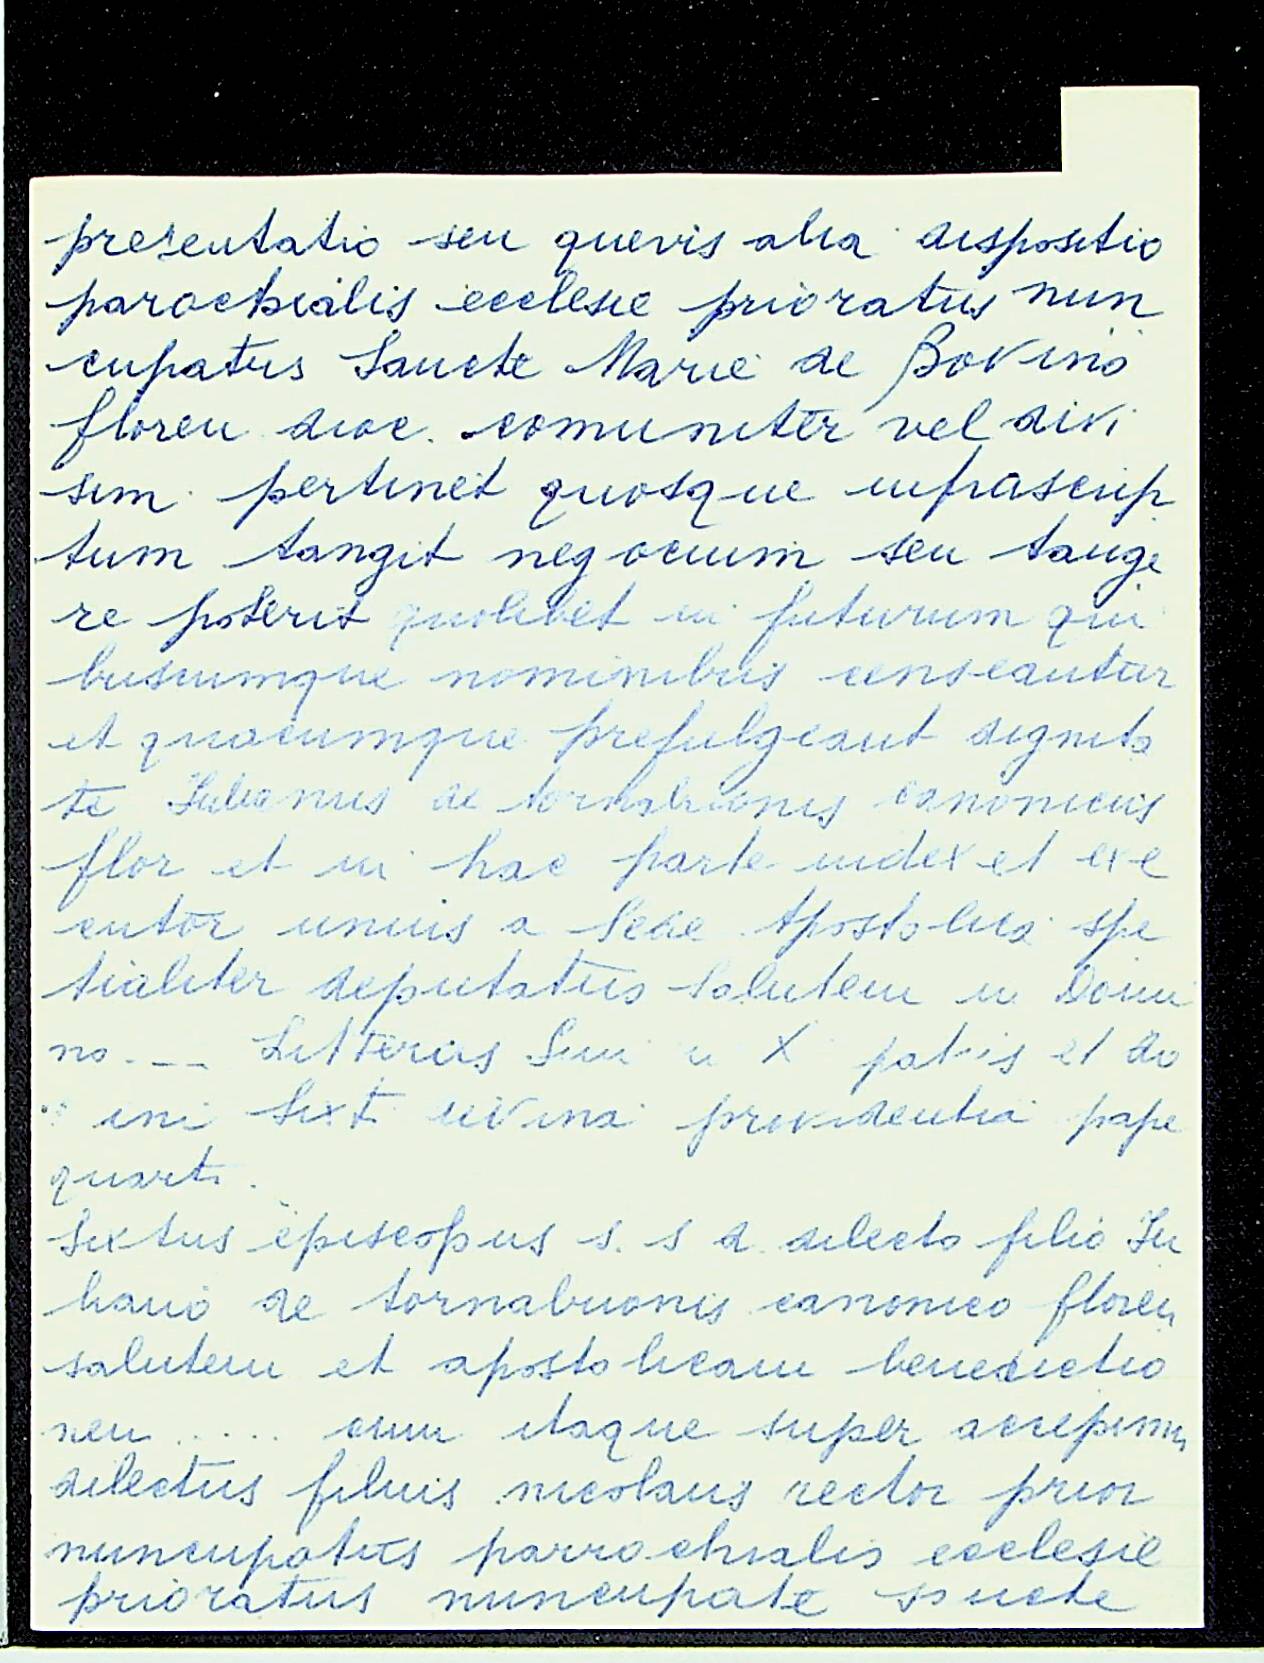 presentatio seu quevis alia dispositio
parochialis ecclesie prioratus nun
cupatus Sancte Marie de Bovino
floren dioc. comuniter vel divi
sim pertinet quosque infrascrip
tum tangit negocium seu tange
re poterit quolibet in futurum qui
buscumque nominibus censeantur
et quacumque prefulgeant dignita
te Iulianus de tornabuonis canonicus
flor et in hac parte iudex et exe
cutor unius a Sede Apostolica spe
tialiter deputatus Salutem in Domi
no. __ Litteras Sm̄i in X patris et do
mini Sixti divina providentia pape
quarti.
Sixtus episcopus s. s d. dilecto filio Iu
liano de tornabuonis canonico floren
salutem et apostolicam benedictio
nem ..... cum itaque super accepimus
dilectus filius nicolaus rector prior
nuncupatus parrochialis ecclesie
prioratus nuncupate sancte